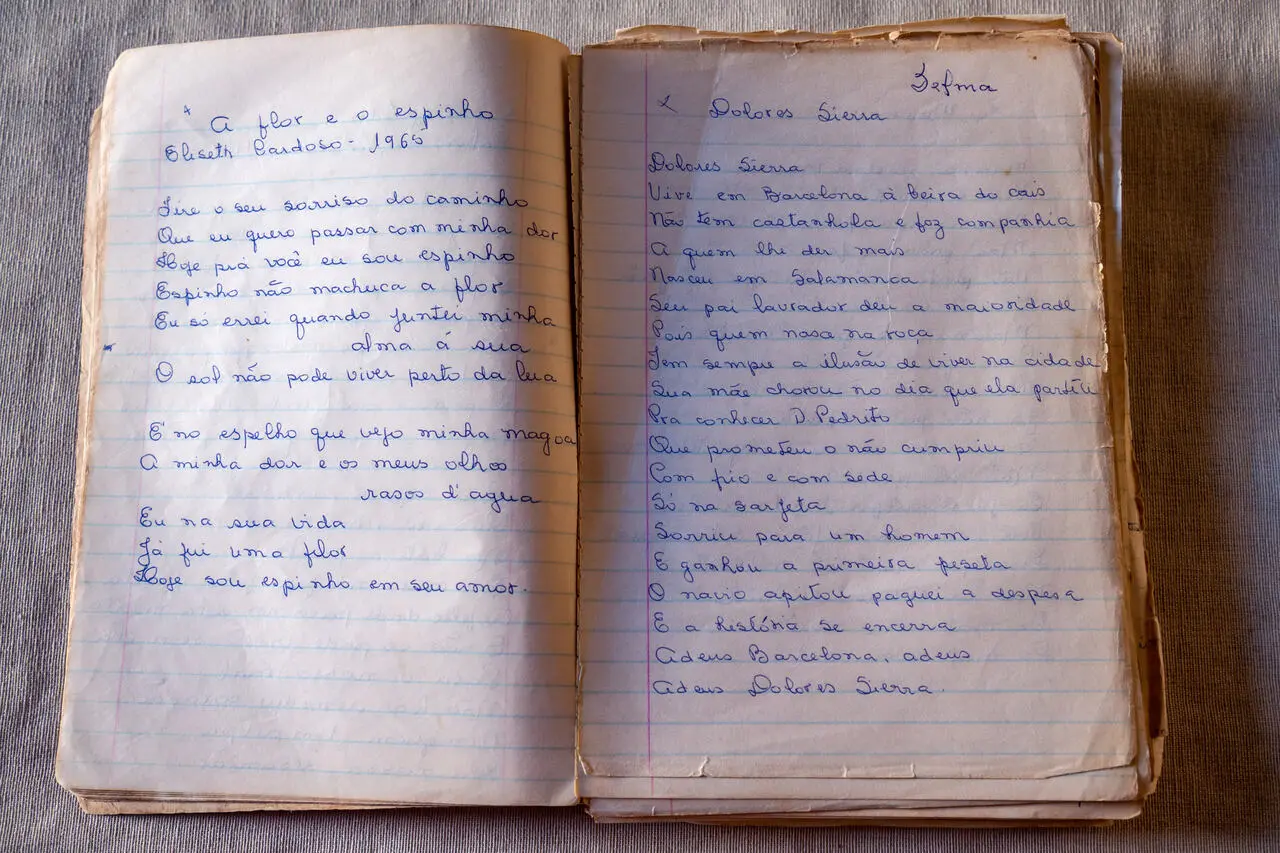 A flor e o espinho
Eliseth Cardoso - 1965
Tire o seu sorriso do caminho
Que eu quero passar com minha dor
Hoje prá você eu sou espinho
Espinho não machuca a flor
Eu só errei quando juntei minha
alma á sua
O sol não pode viver perto da lua
É no espelho que vejo minha magoa
A minha dor e os meus olhos
rasos d'agua
Eu na sua vida
Já fui uma flor
Hoje sou espinho em seu amor.
Dolores Sierra
Dolores Sierra
Vive em Barcelona à beira do cais
Não tem castanhola e faz companhia
A quem lhe der mais
Nasceu em Salamanca
Seu pai lavrador deu a maioridade
Pois quem nasa na roça
Tem sempre a ilusão de viver na cidade
Sua mãe chorou no dia que ela partiu
Pra conhecer D. Pedrito
Que prometeu o não cumpriu
Com frio e com sede
Só na sarjeta
Sorriu para um homem
E ganhou a primeira peseta
O navio apitou paguei a despesa
E a história se encerra
Adeus Barcelona, adeus
Adeus Dolores Sierra.